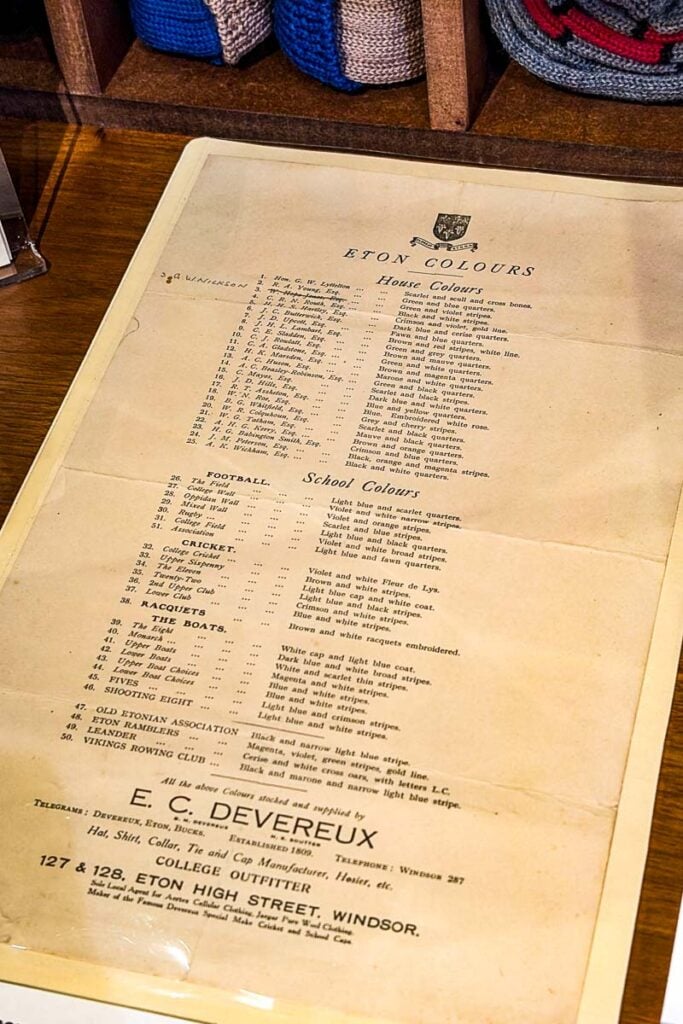 ETON COLOURS
House Colours
3. G. W. NICKSON
1. Hon. G. W. Lyttelton ... Scarlet and scull and cross bones.
2. R. A. Young, Esq. ... Green and blue quarters.
3. W. Hope-Jones, Esq. ... Green and violet stripes.
4. C. R. N. Routh, Esq. ... Black and white stripes.
5. H. H. S. Hartley, Esq. ... Crimson and violet, gold line.
6. J. C. Butterwick, Esq. ... Dark blue and cerise quarters.
7. J. D. Upcott, Esq. ... Fawn and blue quarters.
8. J. H. L. Lambart, Esq. ... Brown and red stripes, white line.
9. C. E. Sladden, Esq. ... Green and grey quarters.
10. C. J. Rowlatt, Esq. ... Brown and mauve quarters.
11. C. A. Gladstone, Esq. ... Green and white quarters.
12. H. K. Marsden, Esq. ... Brown and magenta quarters.
13. A. C. Huson, Esq. ... Marone and white quarters.
14. A. C. Beasley-Robinson, Esq. ... Green and black quarters.
15. C. Mayes, Esq. ... Scarlet and black stripes.
16. J. D. Hills, Esq. ... Dark blue and white quarters.
17. R. T. Assheton, Esq. ... Blue and yellow quarters.
18. W. N. Roe, Esq. ... Blue. Embroidered white rose.
19. B. G. Whitfield, Esq. ... Grey and cherry stripes.
20. W. R. Colquhoun, Esq. ... Scarlet and black quarters.
21. W. G. Tatham, Esq. ... Mauve and black quarters.
22. A. H. G. Kerry, Esq. ... Brown and orange quarters.
23. H. G. Babington Smith, Esq. ... Crimson and blue quarters.
24. J. M. Peterson, Esq. ... Black, orange and magenta stripes.
25. A. K. Wickham, Esq. ... Black and white quarters.
School Colours
FOOTBALL.
26. The Field ... Light blue and scarlet quarters.
27. College Wall ... Violet and white narrow stripes.
28. Oppidan Wall ... Violet and orange stripes.
29. Mixed Wall ... Scarlet and blue stripes.
30. Rugby ... Light blue and black quarters.
31. College Field ... Violet and white broad stripes.
51. Association ... Light blue and fawn quarters.
CRICKET.
32. College Cricket ... Violet and white Fleur de Lys.
33. Upper Sixpenny ... Brown and white stripes.
34. The Eleven ... Light blue cap and white coat.
35. Twenty-Two ... Light blue and black stripes.
36. 2nd Upper Club ... Crimson and white stripes.
37. Lower Club ... Blue and white stripes.
38. RACQUETS ... Brown and white racquets embroidered.
THE BOATS.
39. The Eight ... White cap and light blue coat.
40. Monarch ... Dark blue and white broad stripes.
41. Upper Boats ... White and scarlet thin stripes.
42. Lower Boats ... Magenta and white stripes.
43. Upper Boat Choices ... Blue and white stripes.
44. Lower Boat Choices ... Blue and white stripes.
45. FIVES ... Light blue and crimson stripes.
46. SHOOTING EIGHT ... Light blue and white stripes.
47. OLD ETONIAN ASSOCIATION Black and narrow light blue stripe.
48. ETON RAMBLERS ... Magenta, violet, green stripes, gold line.
49. LEANDER ... Cerise and white cross oars, with letters L.C.
50. VIKINGS ROWING CLUB ... Black and marone and narrow light blue stripe.
All the above Colours stocked and supplied by
E. C. DEVEREUX
TELEGRAMS: DEVEREUX, ETON, BUCKS. ESTABLISHED 1809. TELEPHONE: WINDSOR 287
Hat, Shirt, Collar, Tie and Cap Manufacturer, Hosier, etc.
COLLEGE OUTFITTER
127 & 128, ETON HIGH STREET, WINDSOR.
Sole Local Agent for Aertex Cellular Clothing, Jaeger Pure Wool Clothing.
Maker of the Famous Devereux Special Make Cricket and School Caps.